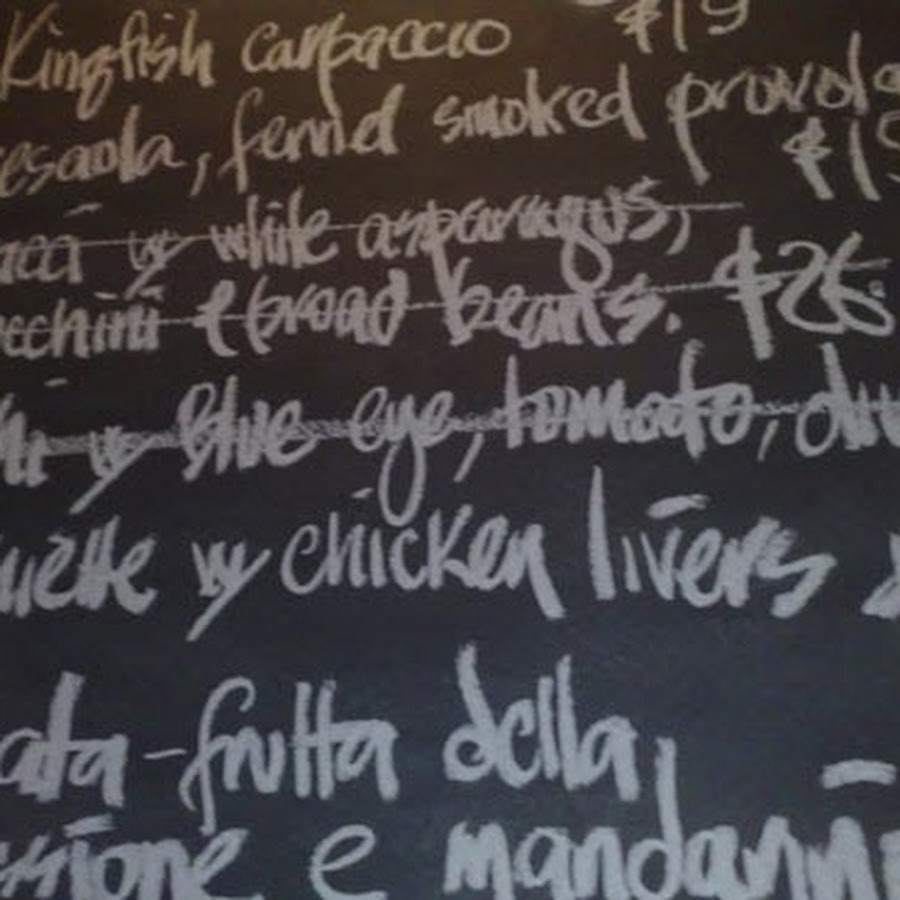 Kingfish carpaccio $19
esaola, fennel smoked provol
$19
w white asparagus,
cchini & broad beans. $26
w Blue eye, tomato,
w chicken livers &
ata - frutta della
ssione e mandarin